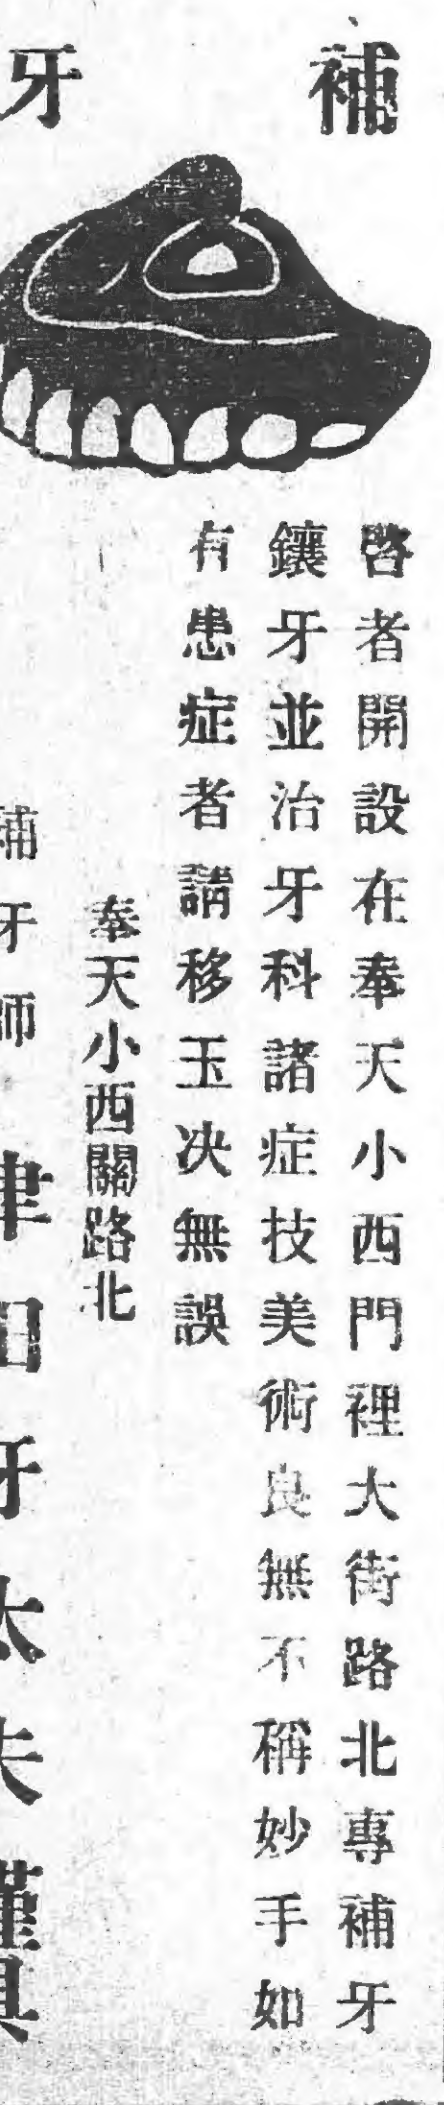 補牙
啓者開設在奉天小西門裡大街路北專補牙
鑲牙並治牙科諸症技美術良無不稱妙手如
有患症者請移玉决無誤
奉天小西關路北
補牙師 津田牙太夫謹具